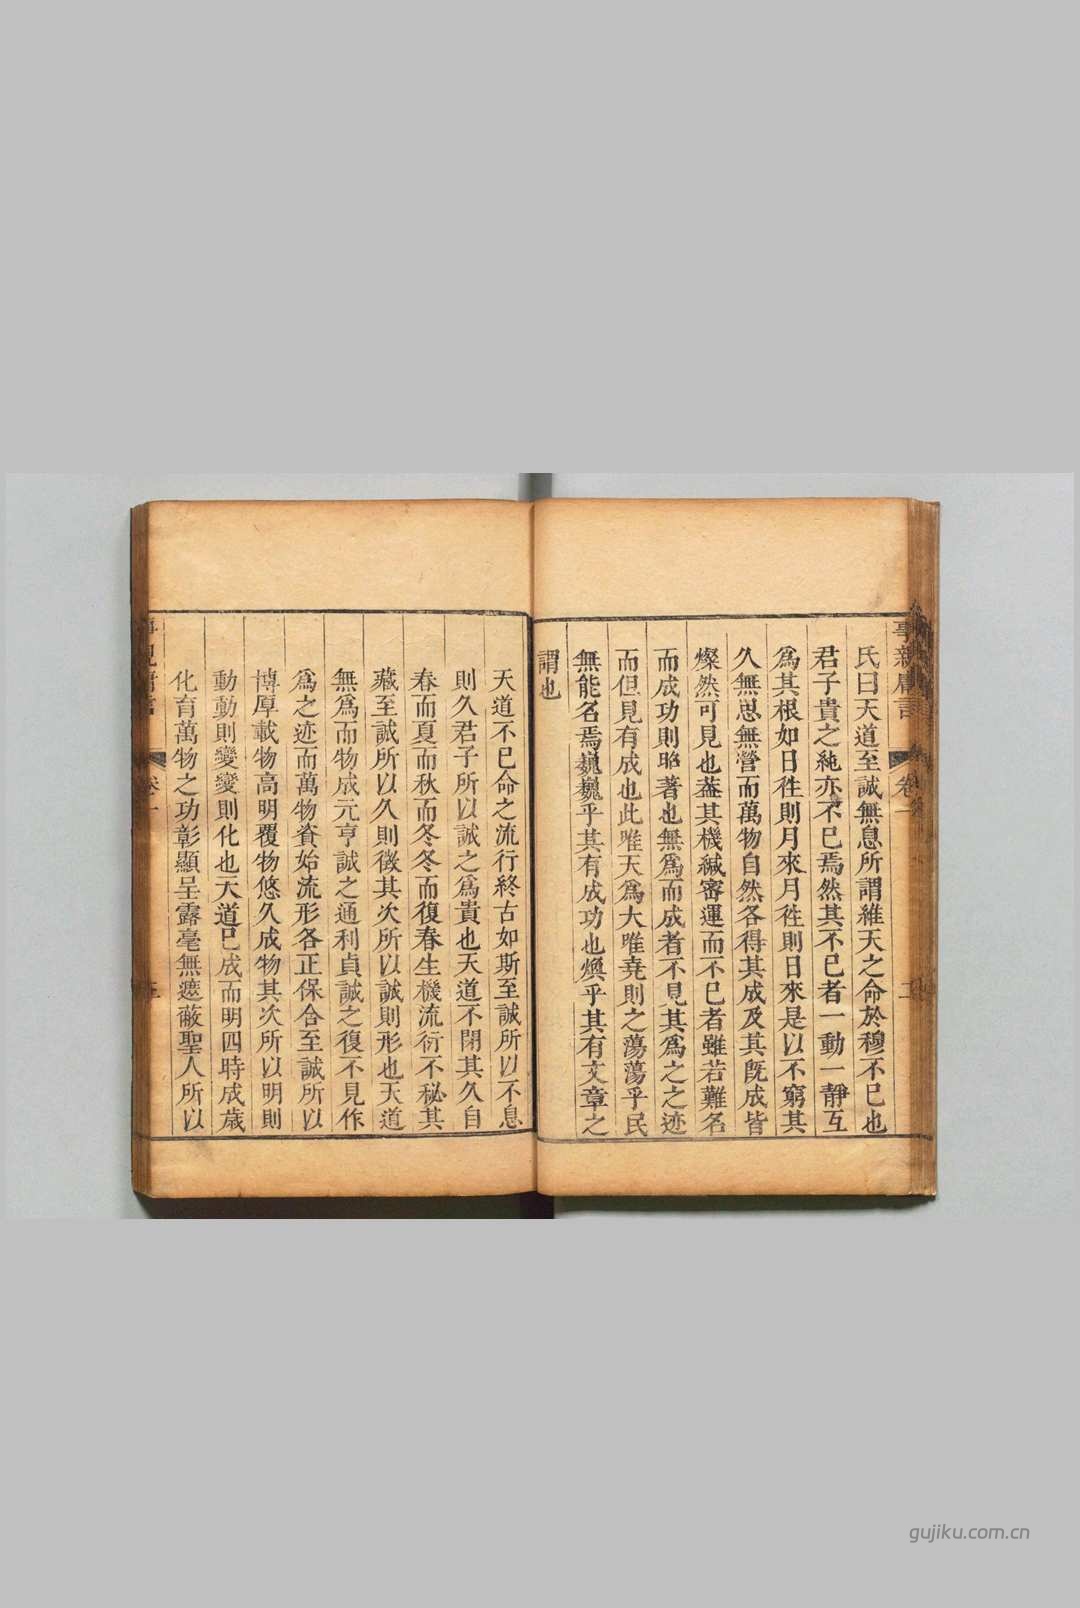 事親庸言
卷一
二
氏曰天道至誠無息所謂維天之命於穆不已也
君子貴之純亦不已焉然其不已者一動一靜互
爲其根如日徃則月來月徃則日來是以不窮其
久無思無營而萬物自然各得其成及其旣成皆
燦然可見也葢其機緘審運而不已者雖若難名
而成功則昭著也無爲而成者不見其爲之之迹
而但見有成也此唯天爲大唯堯則之蕩蕩乎民
無能名焉巍巍乎其有成功也煥乎其有文章之
謂也
天道不已命之流行終古如斯至誠所以不息
則久君子所以誠之爲貴也天道不閉其久自
春而夏而秋而冬冬而復春生機流衍不秘其
藏至誠所以久則徵其次所以誠則形也天道
無爲而物成元亨誠之通利貞誠之復不見作
爲之迹而萬物資始流形各正保合至誠所以
博厚載物高明覆物悠久成物其次所以明則
動動則變變則化也天道已成而明四時成歲
化育萬物之功彰顯呈露毫無遮蔽聖人所以
卷一
gujiku.com.cn